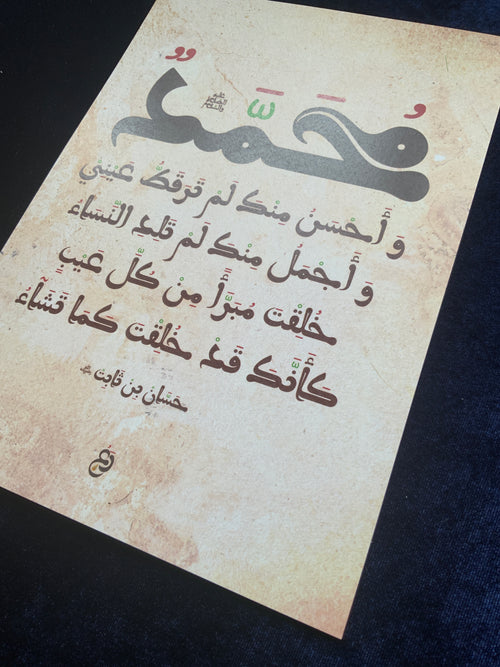 مُحَمَّدٌ ﷺ
وَأَحْسَنُ مِنْكَ لَمْ تَرَ قَطُّ عَيْنِي
وَأَجْمَلُ مِنْكَ لَمْ تَلِدِ النِّسَاءُ
خُلِقْتَ مُبَرَّأً مِنْ كُلِّ عَيْبٍ
كَأَنَّكَ قَدْ خُلِقْتَ كَمَا تَشَاءُ
حَسَّان بن ثَابِت